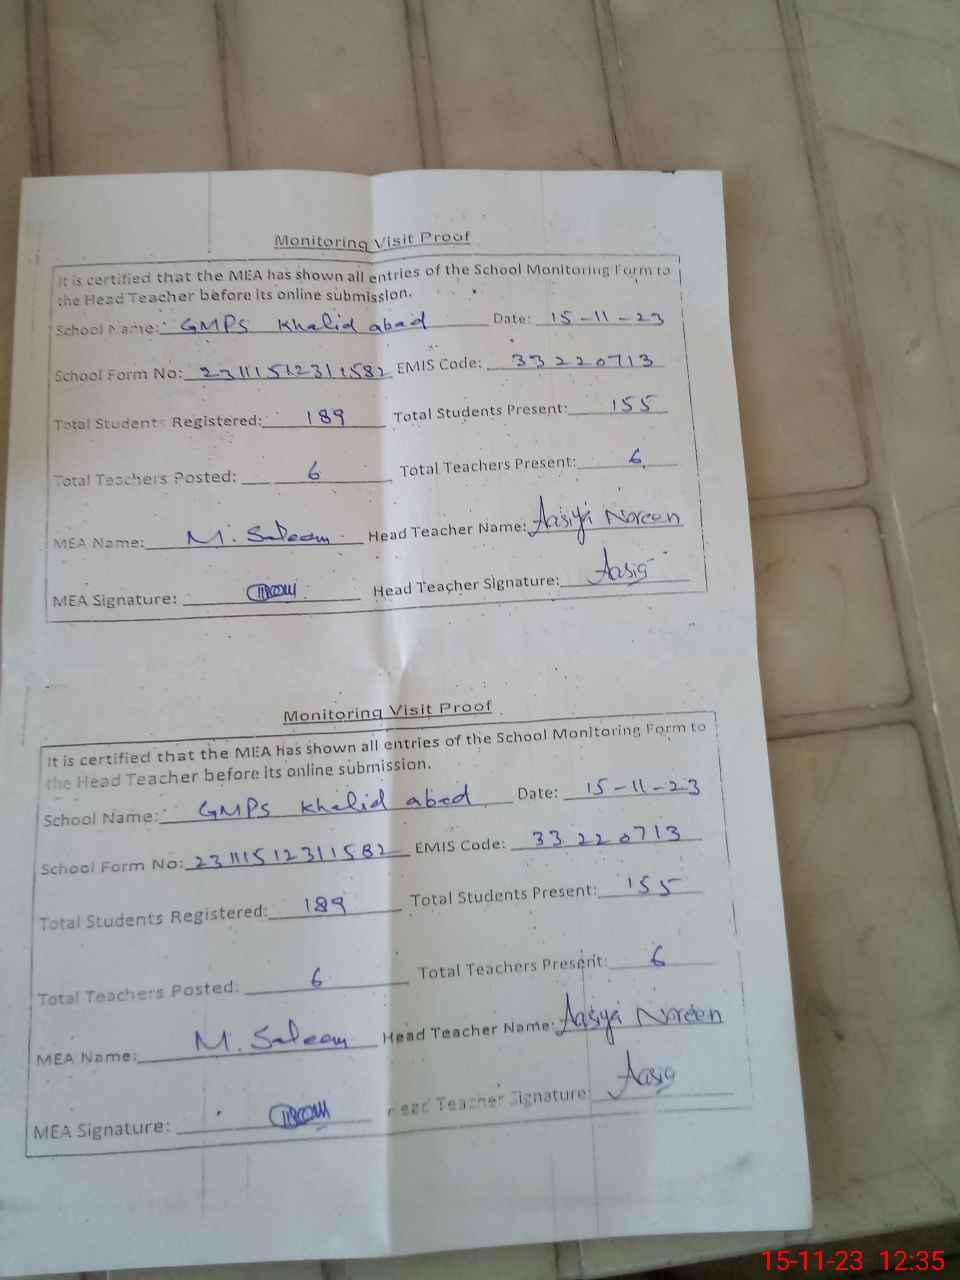 Monitoring Visit Proof
It is certified that the MEA has shown all entries of the School Monitoring Form to
the Head Teacher before its online submission.
School Name: GMPS Khalid abad Date: 15-11-23
School Form No: 23111512311582 EMIS Code: 33220713
Total Students Registered: 189 Total Students Present: 155
Total Teachers Posted: 6 Total Teachers Present: 6
MEA Name: M. Saleem Head Teacher Name: Aasiya Noreen
MEA Signature: Head Teacher Signature: Aasia
Monitoring Visit Proof
It is certified that the MEA has shown all entries of the School Monitoring Form to
the Head Teacher before its online submission.
School Name: GMPS Khalid abad Date: 15-11-23
School Form No: 23111512311582 EMIS Code: 33220713
Total Students Registered: 189 Total Students Present: 155
Total Teachers Posted: 6 Total Teachers Present: 6
MEA Name: M. Saleem Head Teacher Name: Aasiya Noreen
MEA Signature: Head Teacher Signature: Aasia
15-11-23 12:35